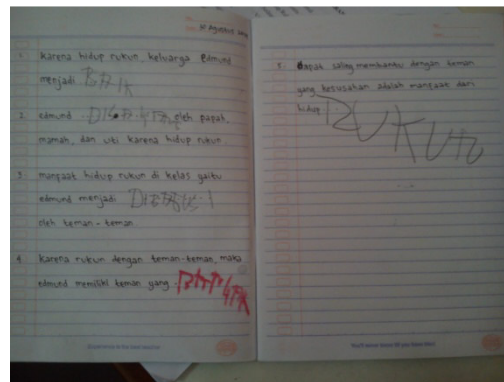 Agustus
1. Karena hidup rukun, keluarga edmund
menjadi BAIK
2. edmund oleh papah,
mamah, dan uti karena hidup rukun
3. manfaat hidup rukun di kelas yaitu
edmund menjadi
oleh teman-teman.
4. Karena rukun dengan teman-teman, maka
edmund memiliki teman yang
5. Dapat saling membantu dengan teman
yang kesusahan adalah manfaat dari
hidup RUKUN